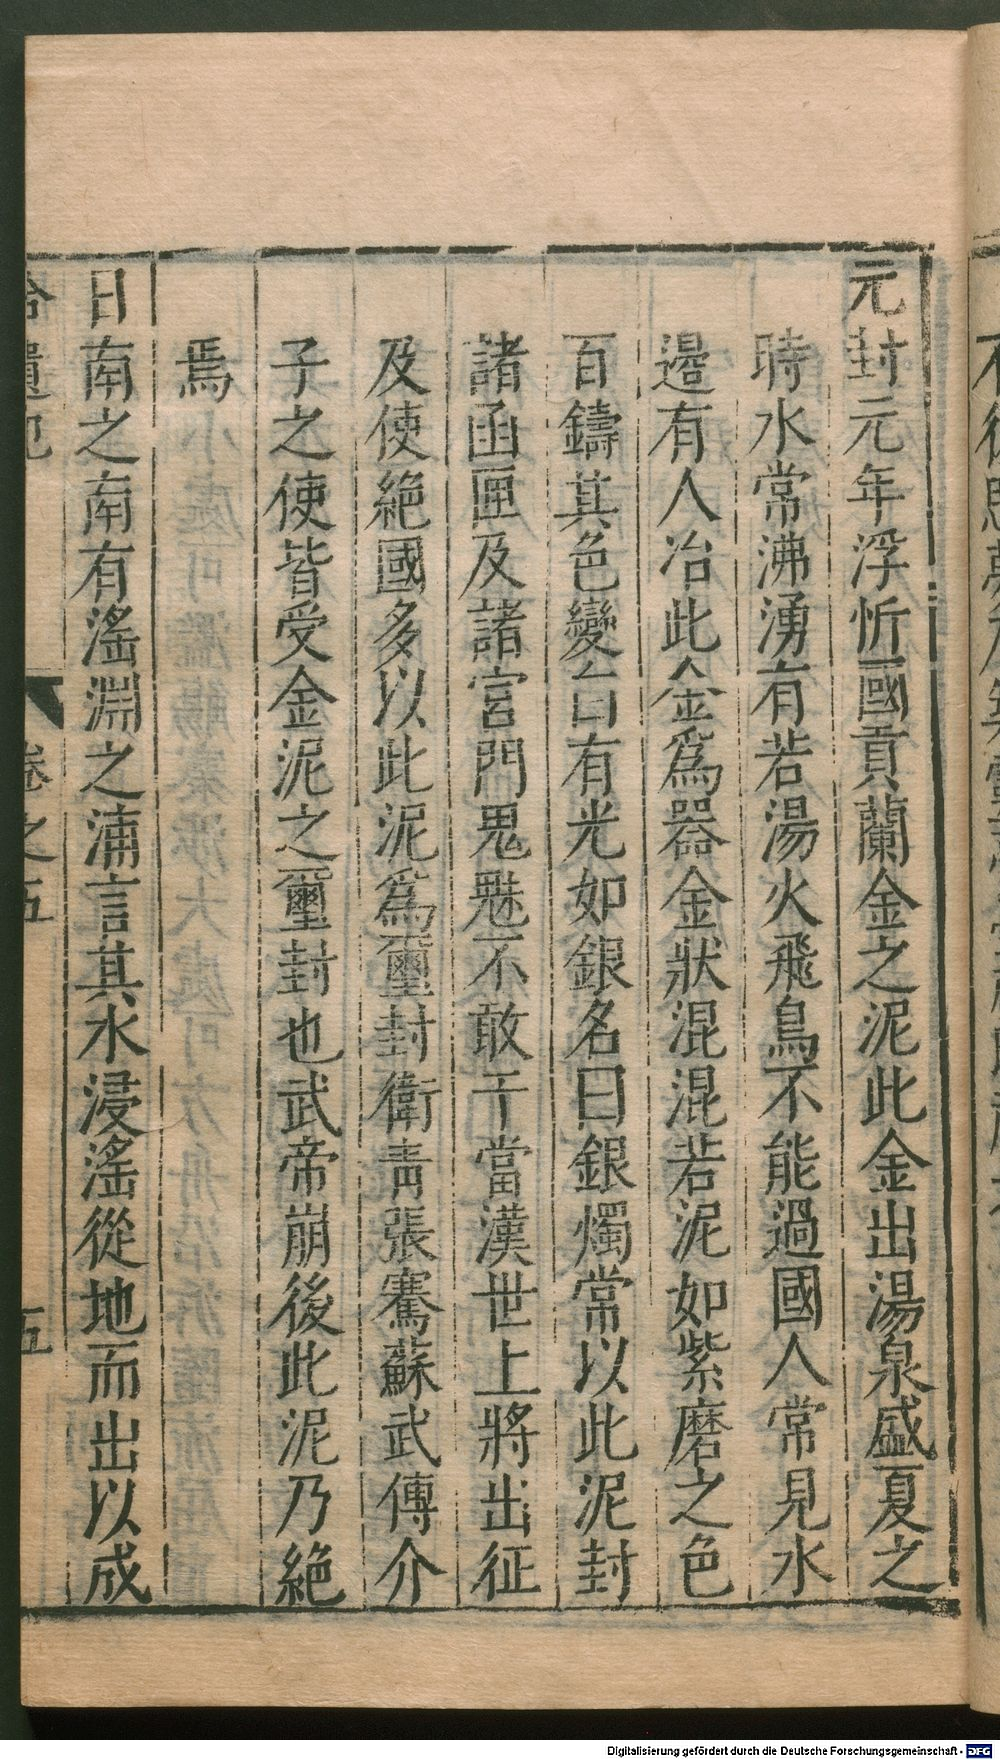 元封元年浮忻國貢蘭金之泥此金出湯泉盛夏之
時水常沸湧有若湯火飛鳥不能過國人常見水
邉有人冶此金爲器金狀混混若泥如紫磨之色
百鑄其色變白有光如銀名曰銀燭常以此泥封
諸函匣及諸宫門鬼魅不敢干當漢世上將出征
及使絶國多以此泥爲璽封衛青張騫蘇武傅介
子之使皆受金泥之璽封也武帝崩後此泥乃絶
焉
日南之南有滛淵之浦言其水浸滛從地而出以成
拾遺記 卷之五 五
Digitalisierung gefördert durch die Deutsche Forschungsgemeinschaft - DFG